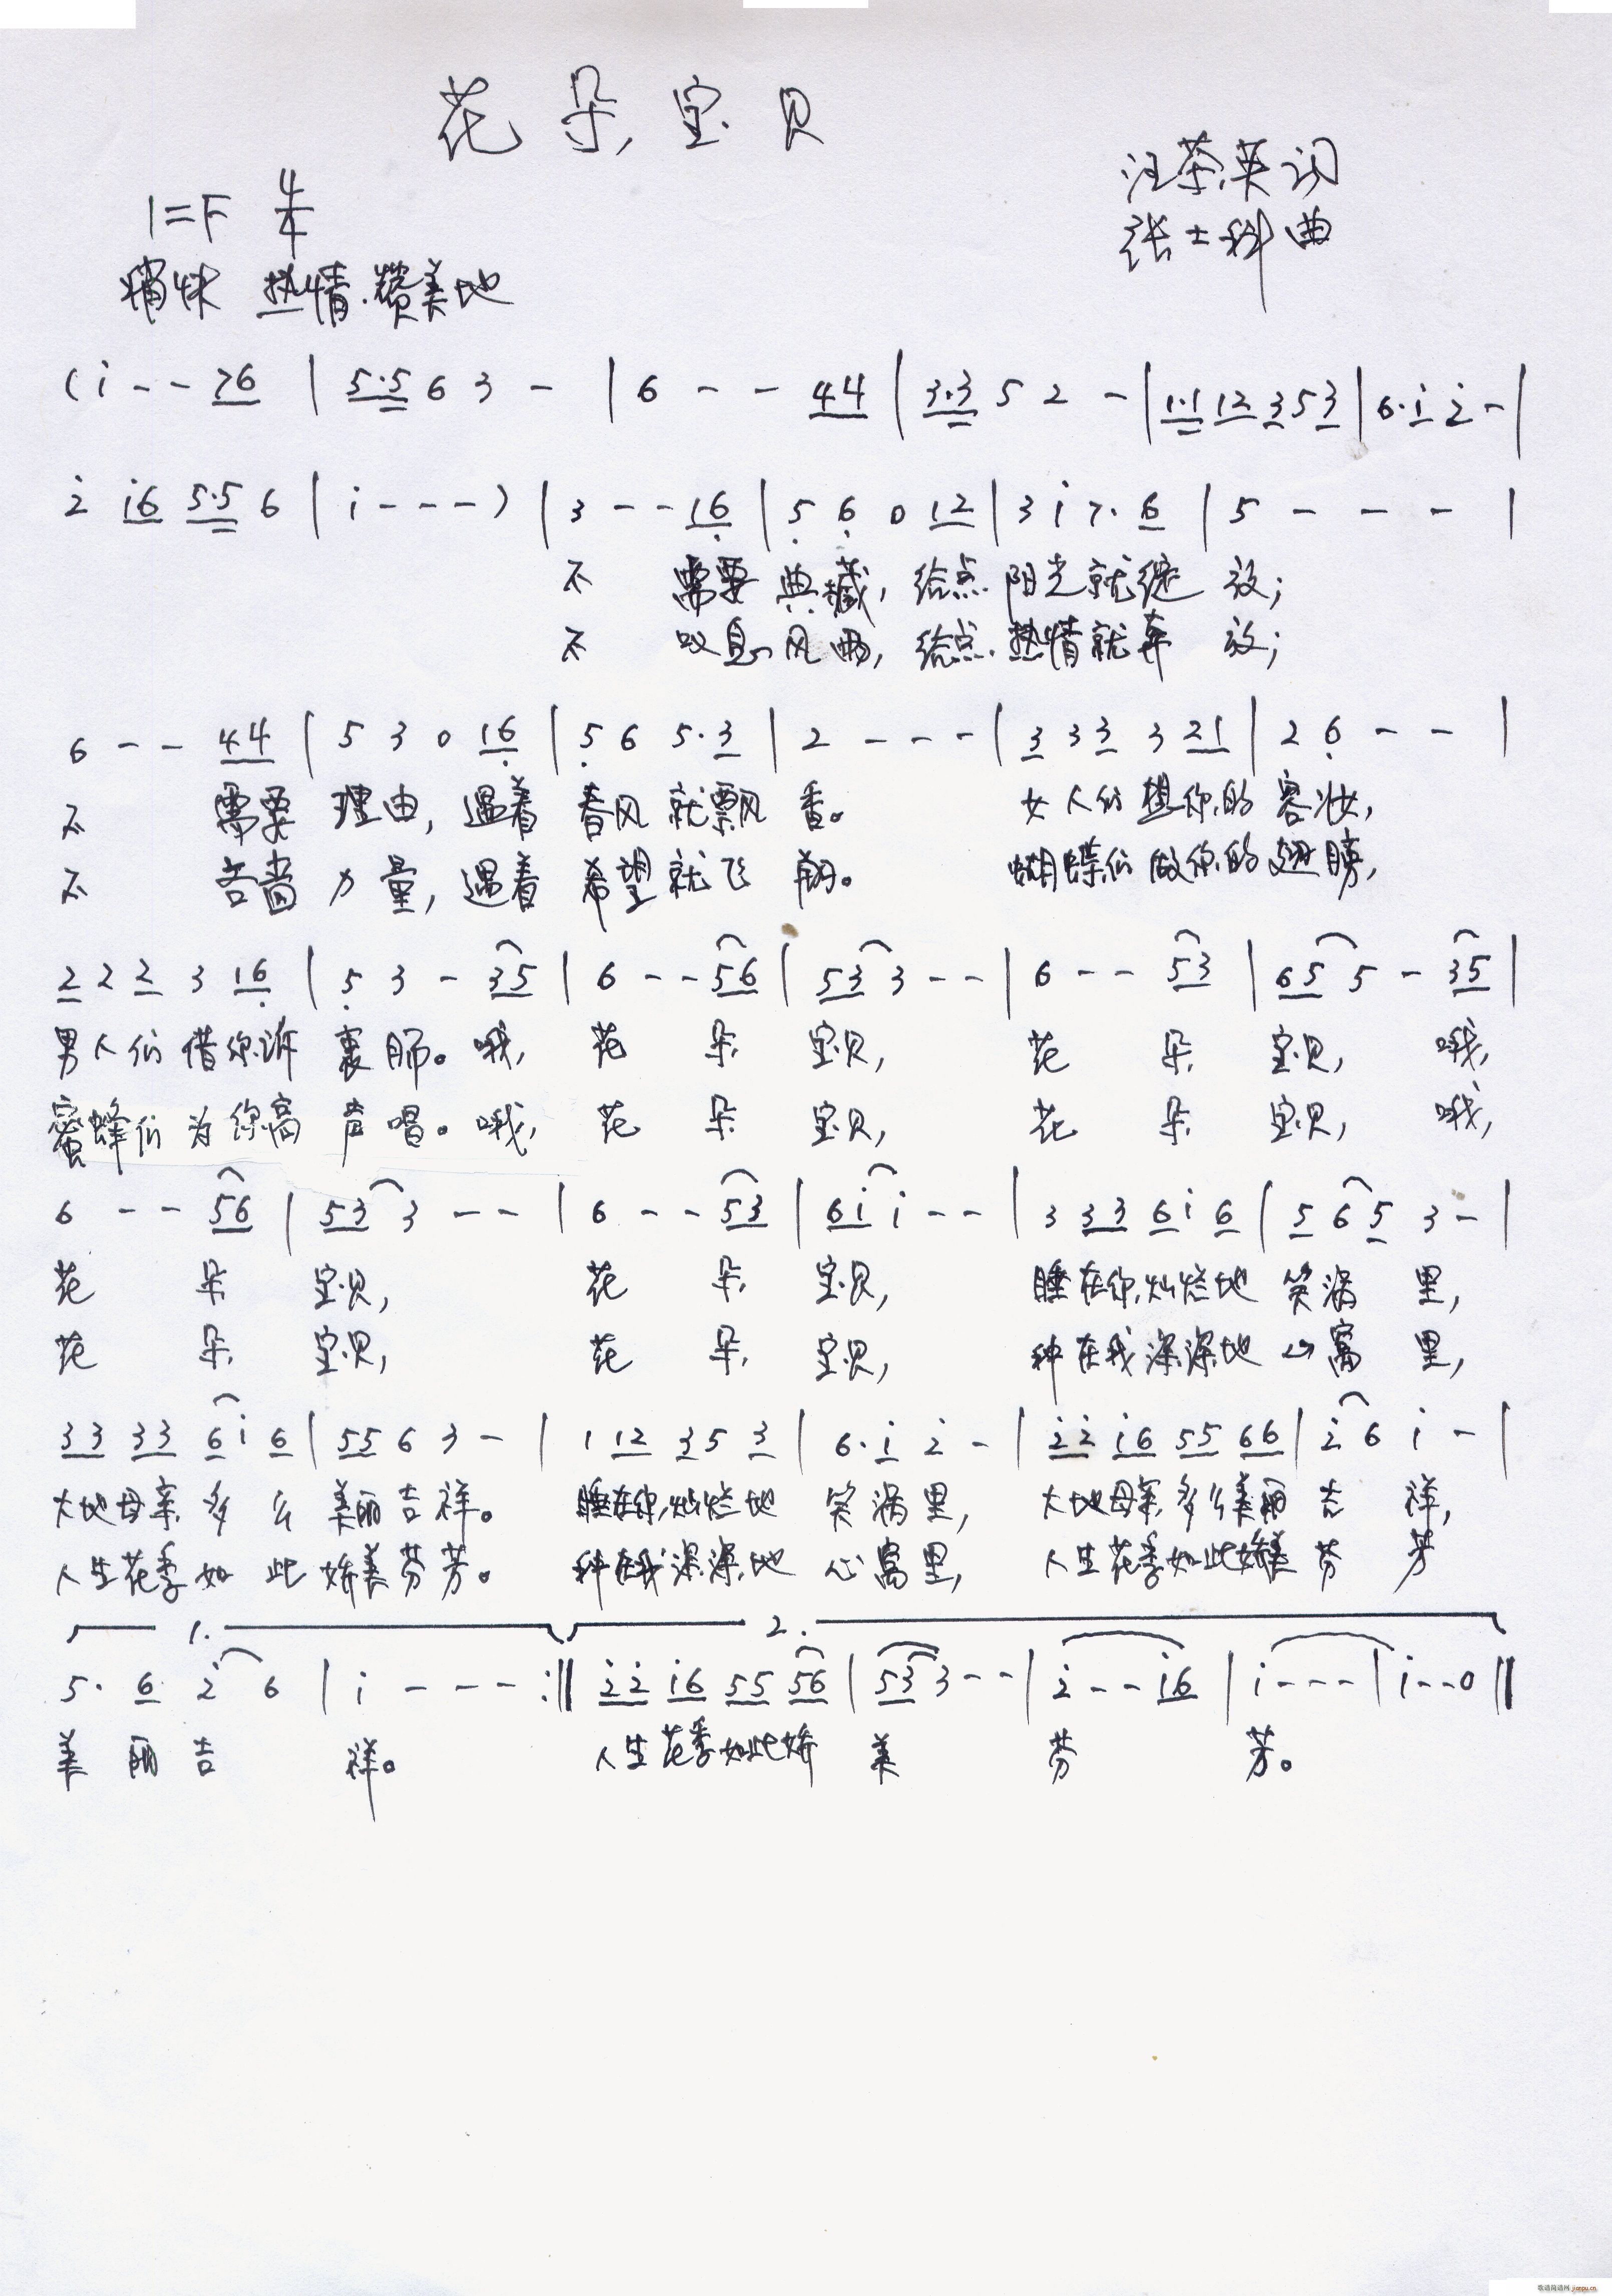 花朵宝贝
汪茶英词
1=F 4/4
张士科曲
稍快 热情.赞美地
(i - - 76 | 5·5 6 3 - | 6 - - 44 | 3·3 5 2 - | 1·1 12 3 5 3 | 6·i 2 - |
2 i6 5·5 6 | i - - - ) | 3 - - 16 | 5 6 0 12 | 3 i 7·6 | 5 - - - |
不 需要 典藏, 给点 阳光就绽 放;
不 叹息 风雨, 给点 热情就奔 放;
6 - - 44 | 5 3 0 16 | 5 6 5·3 | 2 - - - | 3 3 3 3 21 | 2 6 - - |
不 需要 理由, 遇着 春风就飘 香。 女人们 想你的 容妆,
不 吝啬 力量, 遇着 希望就飞 翔。 蝴蝶们 做你的 翅膀,
2 2 2 3 16 | 5 3 - 35 | 6 - - 56 | 53 3 - - | 6 - - 53 | 65 5 - 35 |
男人们 借你诉 衷肠。哦, 花 朵 宝贝, 花 朵 宝贝, 哦,
蜜蜂们 为你高 声唱。哦, 花 朵 宝贝, 花 朵 宝贝, 哦,
6 - - 56 | 53 3 - - | 6 - - 53 | 6i i - - | 3 33 6 i 6 | 5 6 5 3 - |
花 朵 宝贝, 花 朵 宝贝, 睡在你灿烂地 笑涡 里,
花 朵 宝贝, 花 朵 宝贝, 种在我深深地 心窝 里,
33 33 6 i 6 | 55 6 3 - | 1 12 3 5 3 | 6·i 2 - | 22 i6 55 66 | 2 6 i - |
大地母亲 多 么 美丽吉祥。 睡在你灿烂地 笑涡里, 大地母亲多么美丽 吉 祥,
人生花季 如 此 娇美芬芳。 种在我深深地 心窝里, 人生花季如此娇美 芬 芳
1. 2.
5· 6 2 6 | i - - - :‖ 22 i6 55 56 | 53 3 - - | 2 - - i6 | i - - - | i - - 0 ‖
美 丽 吉 祥。 人生花季如此娇 美 芬 芳。